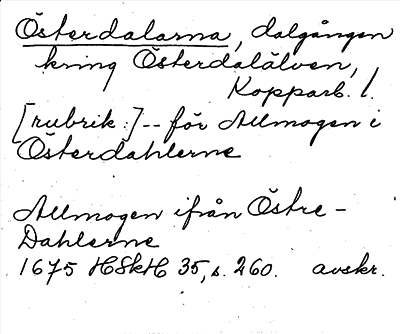 Österdalarna, dalgången
kring Österdalälven,
Kopparb. l.
[rubrik:] -- för Allmogen i
Österdahlerne
Allmogen ifrån Östre-
Dahlerne
1675 HSkH 35, s. 260. avskr.